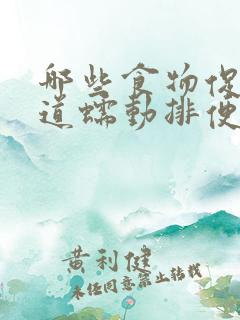 哪些食物促
道蠕动排便
黄利健
未经同意禁止转载